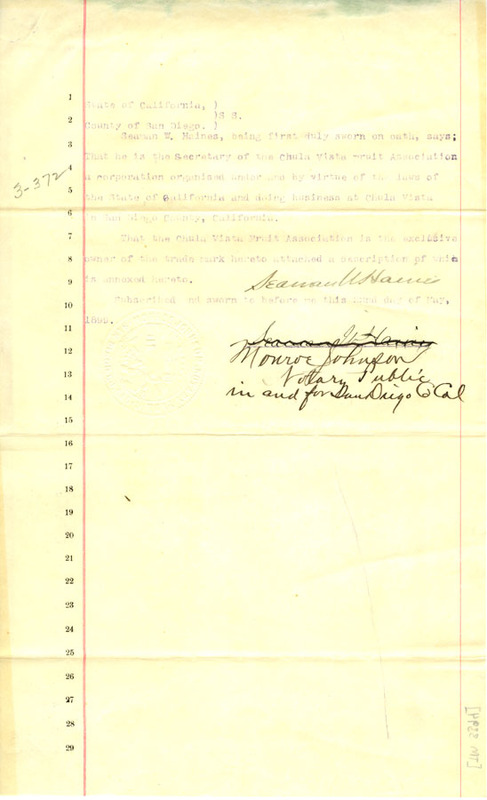 1
State of California, )
)S S.
2
County of San Diego. )
3
Seaman W. Haines, being first duly sworn on oath, says;
4
That he is the Secretary of the Chula Vista Fruit Association
3-372
5
a corporation organized under and by virtue of the laws of
the State of California and doing business at Chula Vista
6
in San Diego County, California.
7
That the Chula Vista Fruit Association is the exclusive
8
owner of the trade mark hereto attached a description of which
9
is annexed hereto.
Seaman W Haines
10
Subscribed and sworn to before me this 22nd day of May,
11
1899.
Seaman W Haines
12
Monroe Johnson
13
Notary Public
14
in and for San Diego Co Cal
15
16
17
18
19
20
21
22
23
24
25
26
27
28
29